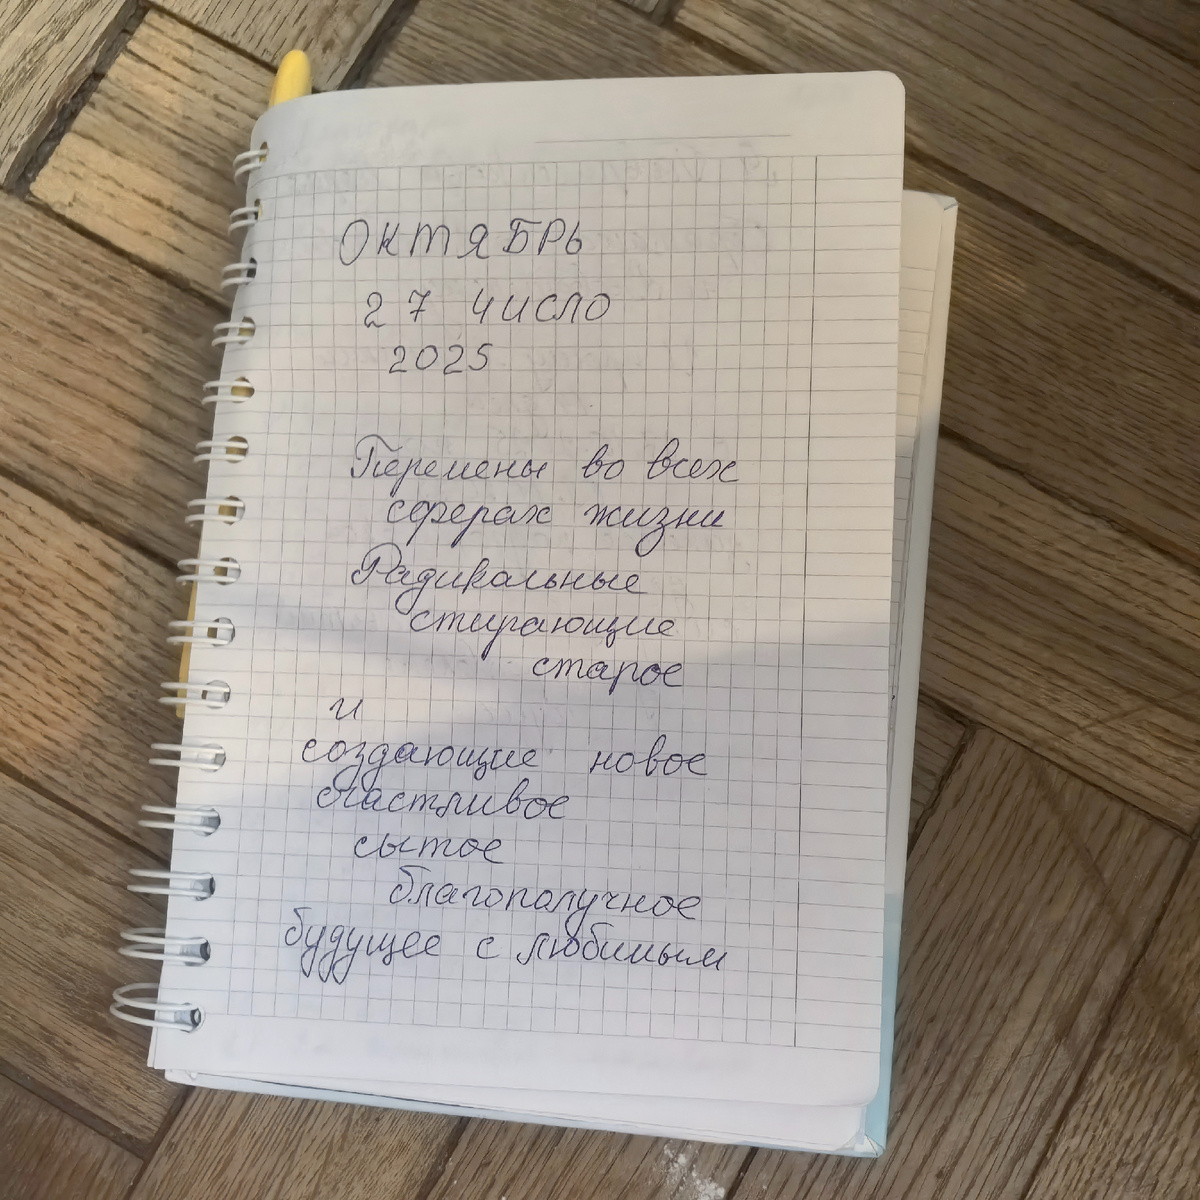 ОКТЯБРЬ
27 ЧИСЛО
2025
Перемены во всех
сферах жизни
Радикальные
стирающие
старое
и
создающие новое
счастливое
сытое
благополучное
будущее с любимым